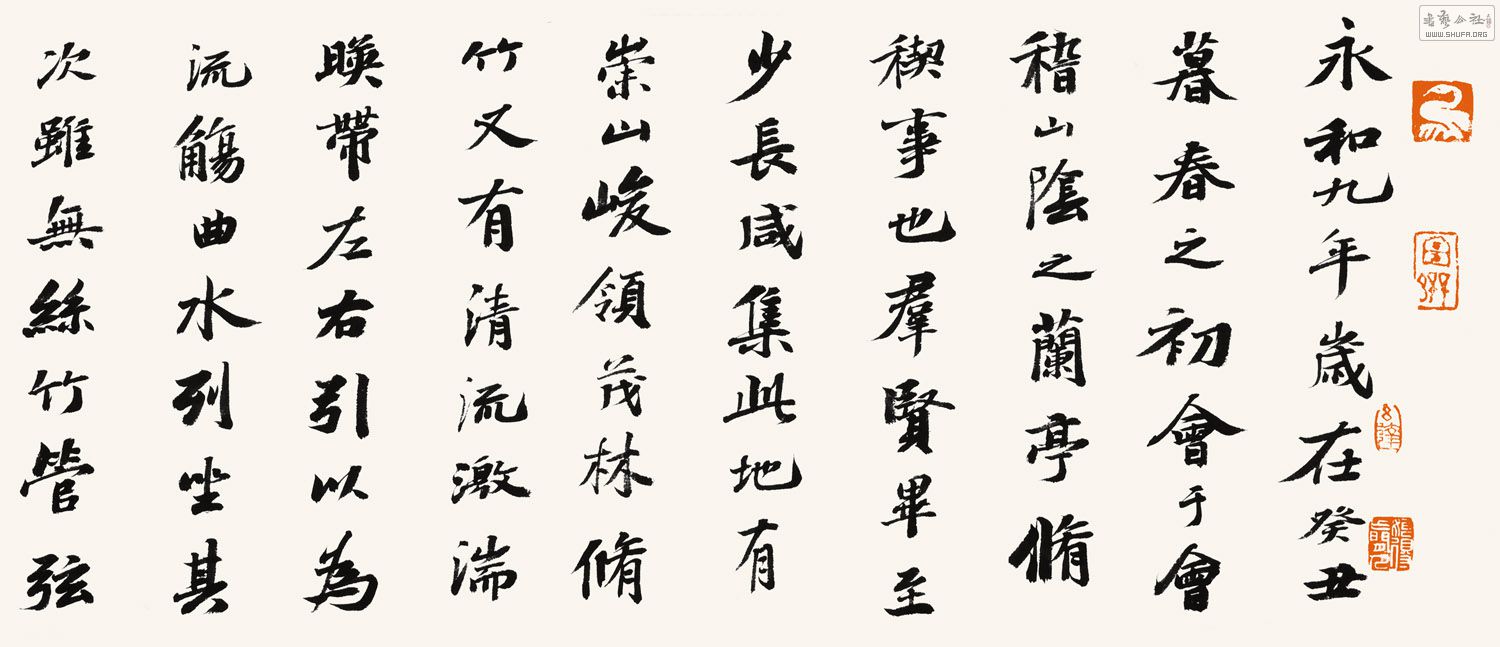 永和九年歲在癸丑
暮春之初會于會
稽山陰之蘭亭脩
稧事也羣賢畢至
少長咸集此地有
崇山峻領茂林脩
竹又有清流激湍
暎帶左右引以為
流觴曲水列坐其
次雖無絲竹管弦
WWW.SHUFA.ORG